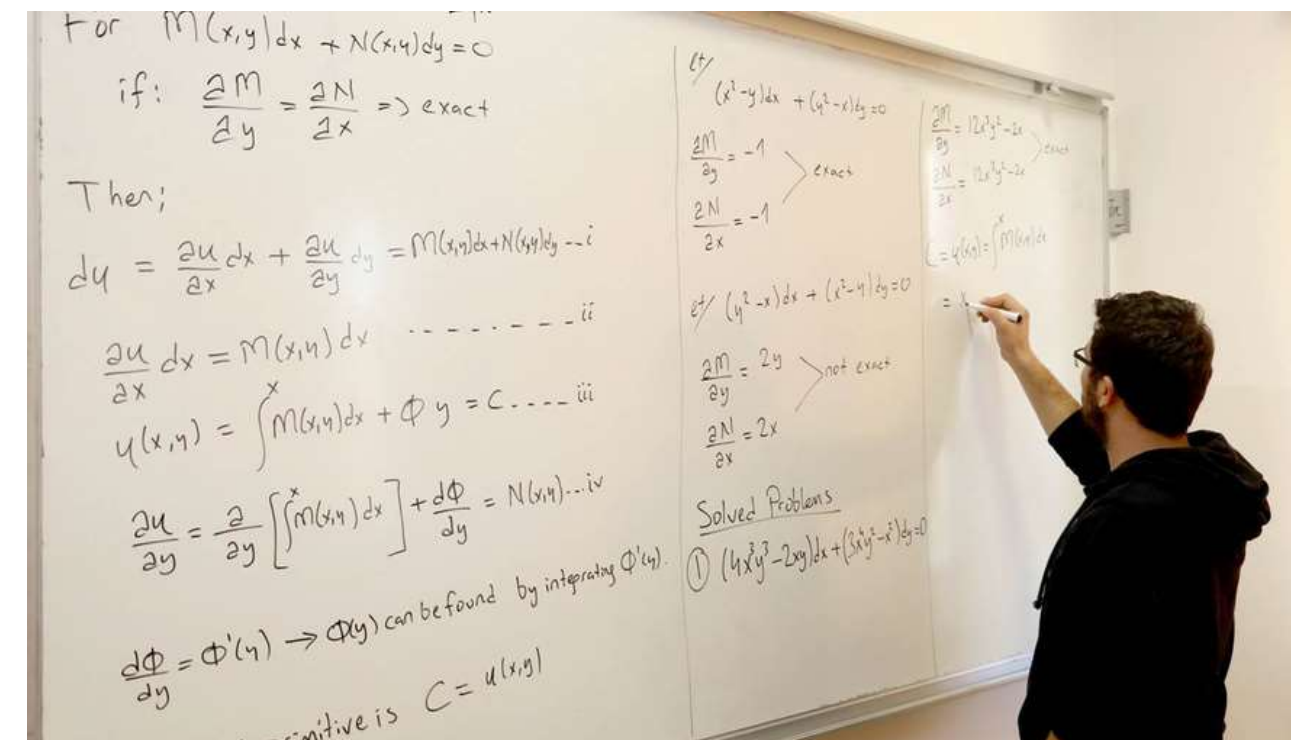 For M(x,y)dx + N(x,y)dy = 0
if: ∂M/∂y = ∂N/∂x => exact
Then;
du = ∂u/∂x dx + ∂u/∂y dy = M(x,y)dx+N(x,y)dy --- i
∂u/∂x dx = M(x,y)dx - - - - - - - - ii
u(x,y) = ∫^x M(x,y)dx + Φ y = C ---- iii
∂u/∂y = ∂/∂y [∫^x M(x,y)dx] + dΦ/dy = N(x,y)--- iv
dΦ/dy = Φ'(y) → Φ(y) can be found by integrating Φ'(y).
is C = u(x,y)
et/
(x²-y)dx + (y²-x)dy=0
∂M/∂y = -1
exact
∂N/∂x = -1
et/ (y²-x)dx + (x²-y)dy=0
∂M/∂y = 2y
not exact
∂N/∂x = 2x
Solved Problems
① (4x³y³-2xy)dx+(3x⁴y²-x²)dy=0
∂M/∂y = 12x³y²-2x
exact
∂N/∂x = 12x³y²-2x
C = u(x,y) = ∫^x M(x,y)dx
=